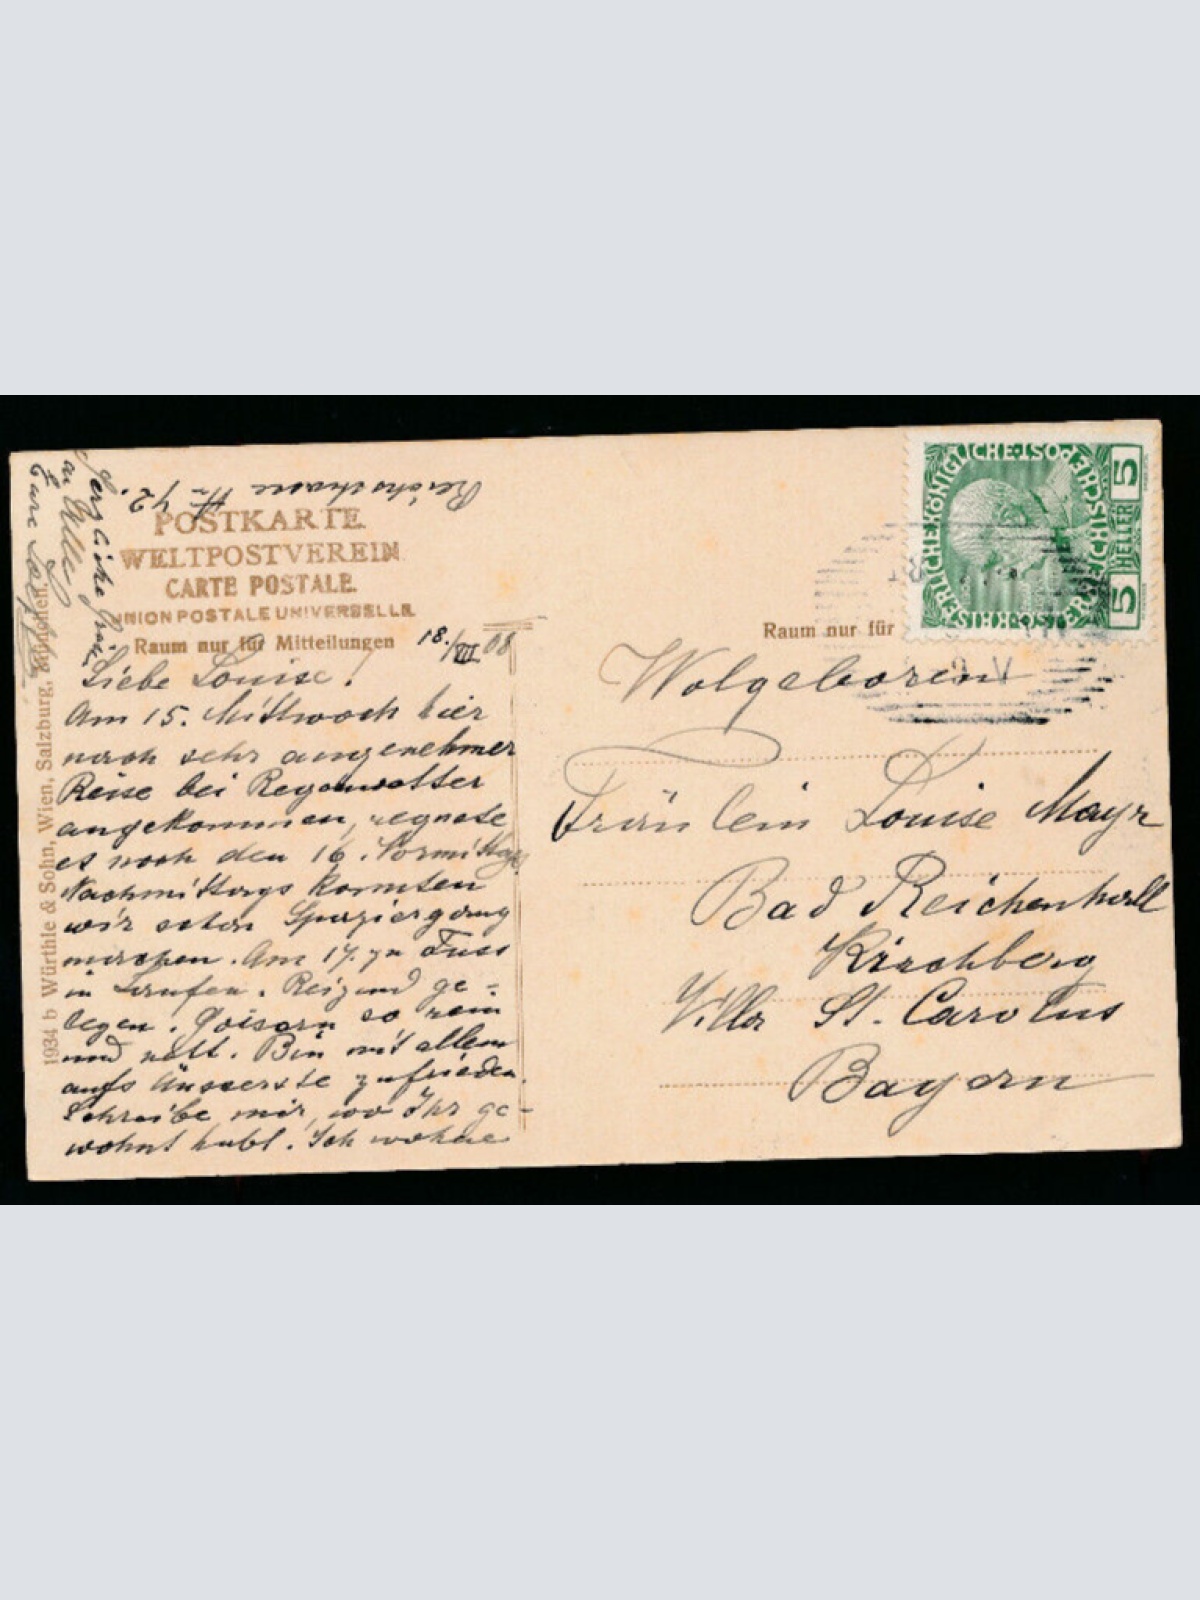 POSTKARTE.
WELTPOSTVEREIN
CARTE POSTALE.
UNION POSTALE UNIVERSELLE.
Raum nur für Mitteilungen
18./VII 08
Liebe Louise!
Am 15. Mittwoch hier
nach sehr angenehmer
Reise bei Regenwetter
angekommen, regnete
es noch den 16. Vormittag,
Nachmittags konnten
wir schon Spaziergang
machen. Am 17. zu Fuss
in Laufen. Reizend ge-
legen. Goisern so rein
und nett. Bin mit allem
aufs Äusserste zufrieden.
Schreibe mir, wo Ihr ge-
wohnt habt. Ich wohne
Reichsstrasse Nr 42.
Herzliche Grüsse
an Alle
Eure
1934 b Würthle & Sohn, Wien, Salzburg, München.
Raum nur für
KAISERLICHE KÖNIGLICHE ÖSTERREICHISCHE POST
5 HELLER 5
Wolgeboren
Fräulein Louise Mayr
Bad Reichenhall
Kirchberg
Villa St. Carolus
Bayern